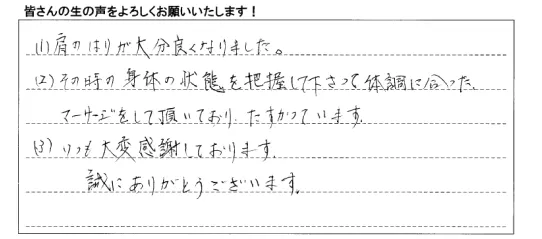 皆さんの生の声をよろしくお願いいたします！
(1)肩のはりが大分良くなりました。
(2)その時の身体の状態を把握して下さって体調に合った、
マーサージをして頂いており、たすかっています。
(3)いつも大変感謝しております。
誠にありがとうございます。